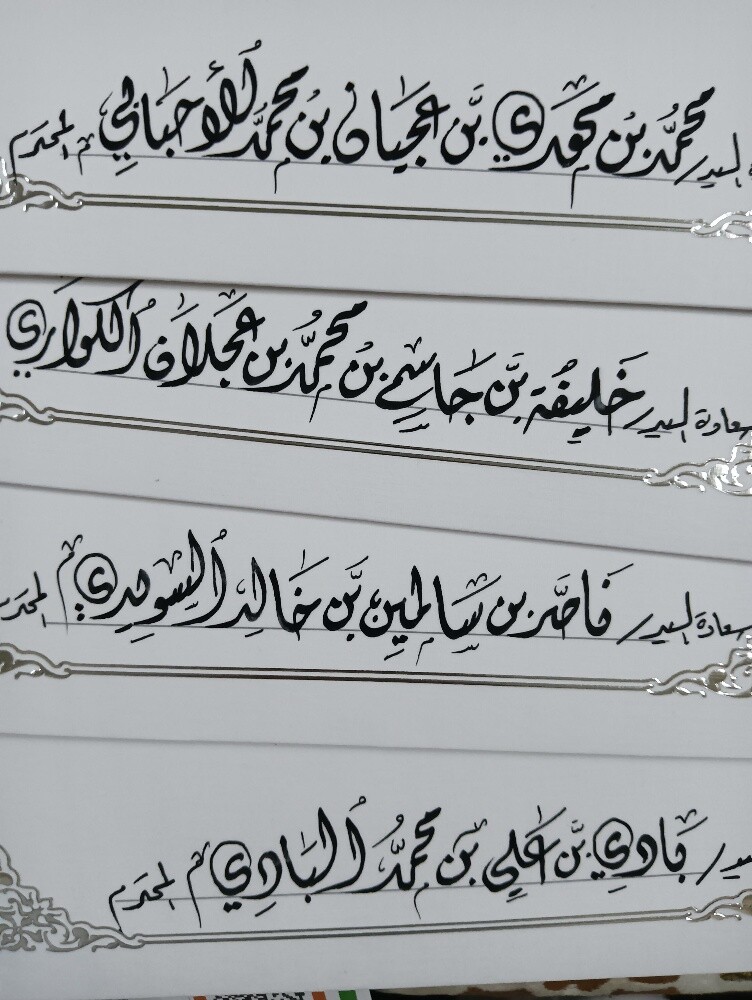 السيد/ محمد بن محمدي بن عجيان بن محمد الأحبابي المحترم
سعادة السيد/ خليفة بن جاسم بن محمد بن عجلان الكواري
سعادة السيد/ ناصر بن سالمين بن خالد السويدي المحترم
السيد/ بادي بن علي بن محمد البادي المحترم